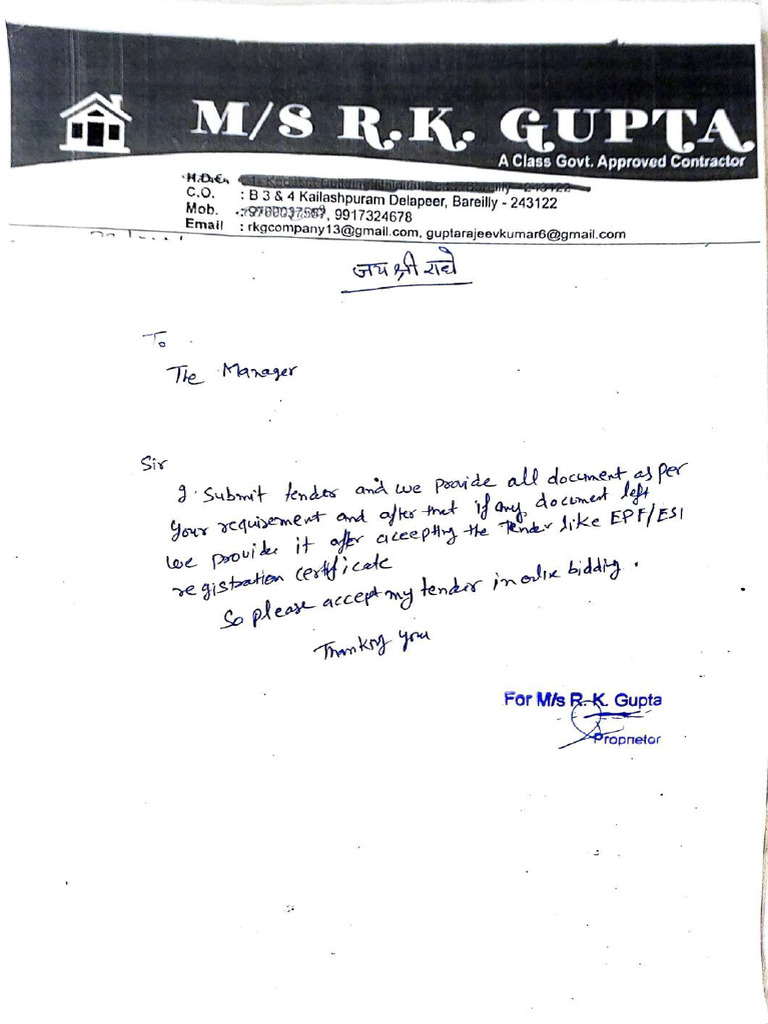 M/S R.K. GUPTA
A Class Govt. Approved Contractor
H.O.
C.O. : B 3 & 4 Kailashpuram Delapeer, Bareilly - 243122
Mob. : 9917324678
Email : rkgcompany13@gmail.com, guptarajeevkumar6@gmail.com
जय श्री राधे
To
The Manager
Sir
I Submit tender and we provide all document as per
your requirement and after that if any document left
we provide it after accepting the Tender like EPF/ESI
registration certificate
So please accept my tender in online bidding.
Thanking you
For M/s R. K. Gupta
Proprietor